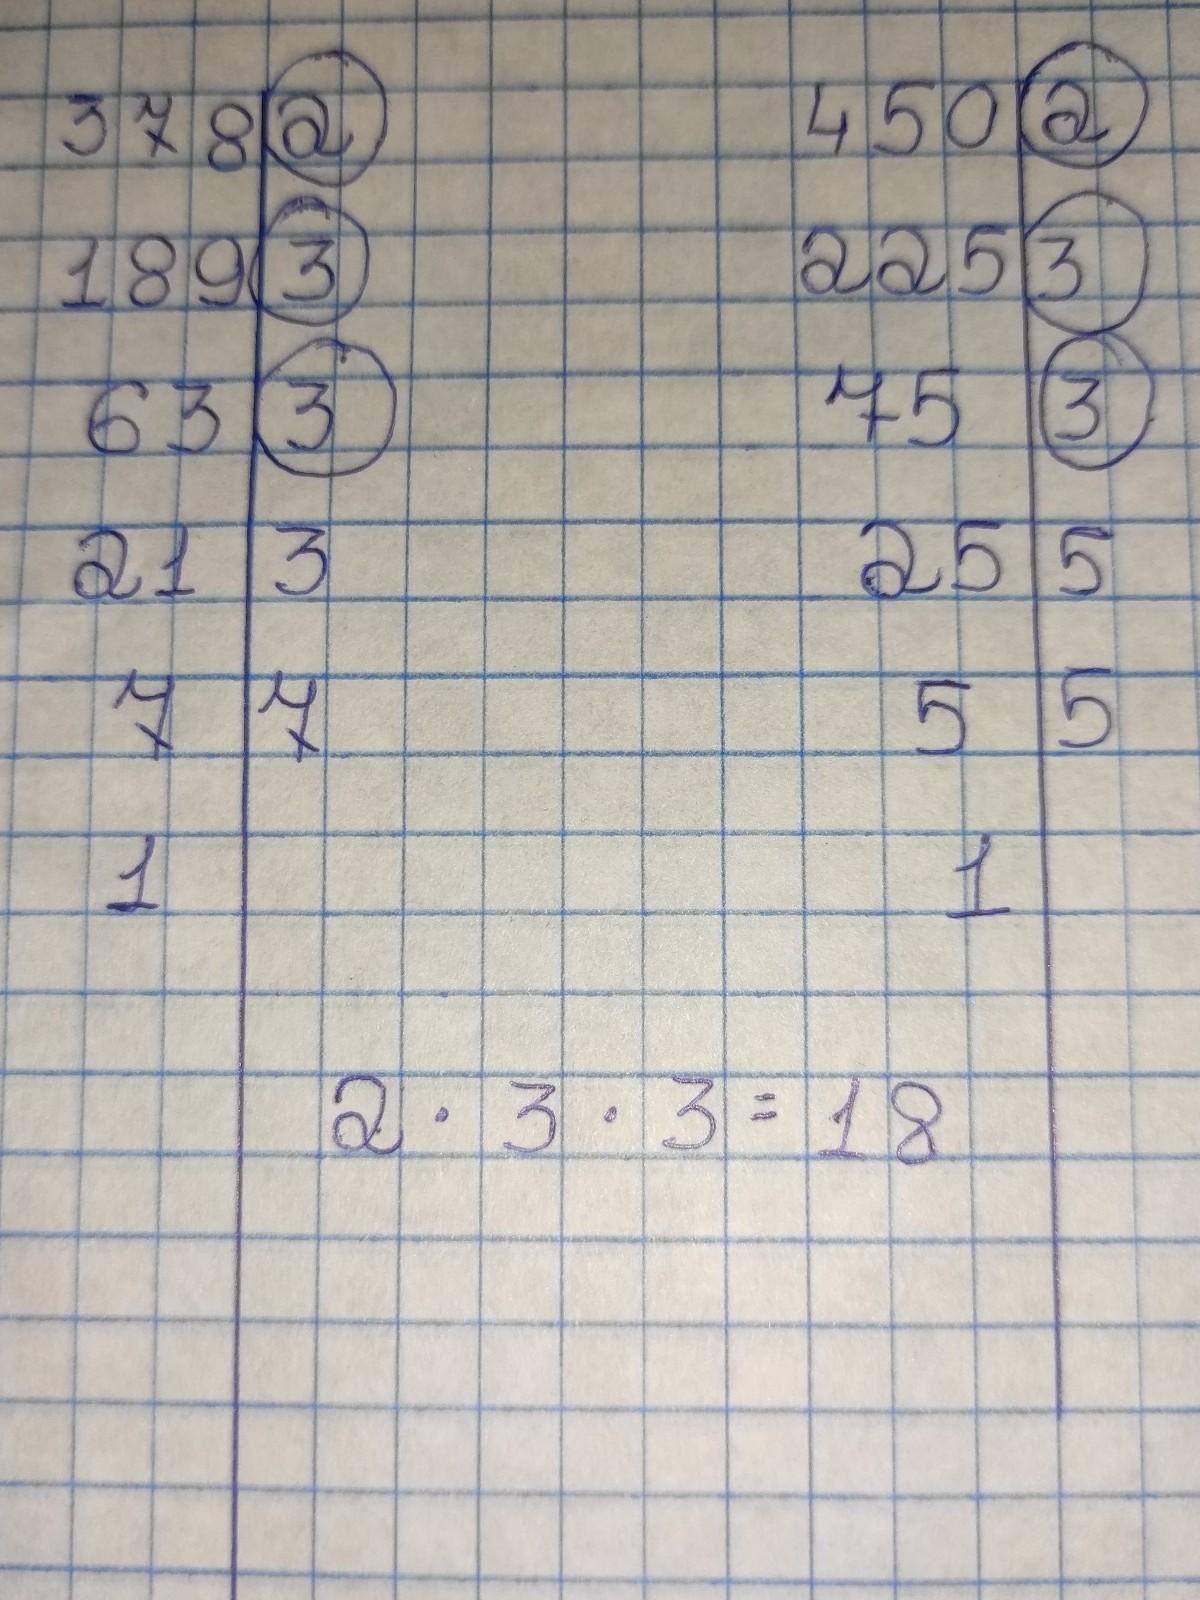 378 2 450 2
189 3 225 3
63 3 75 3
21 3 25 5
7 7 5 5
1 1
2 · 3 · 3 = 18